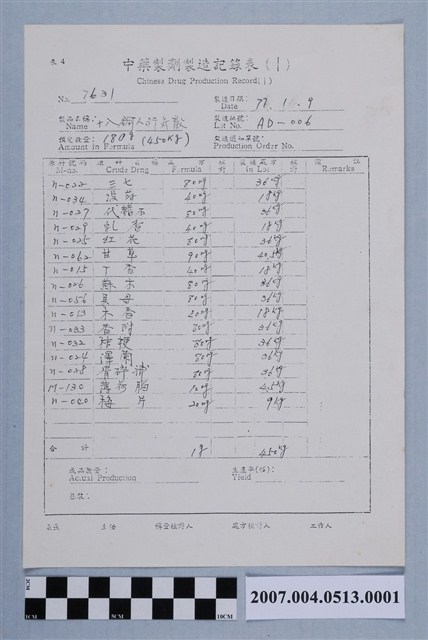 表 4
中藥製劑製造記錄表(1)
Chinese Drug Production Record(1)
No. 7631 製造日期: Date 78.10.9
製品名稱: Name 十八銅人行氣散 製造批號: Lot No. AD-006
預定投量: Amount in Formula 180g (450kg) 製造通知單號: Production Order No.
原料號碼 M-no. 原料名稱 Crude Drug 處方 Formula 核對 製造處方 In Lot 核對 備註 Remarks
n-022 三七 80g 36kg
n-034 沒藥 40g 18kg
n-027 代赭石 80g 36kg
n-029 乳香 40g 18kg
n-025 紅花 80g 36kg
n-062 甘草 90g 40.5kg
n-015 丁香 40g 18kg
n-026 蘇木 80g 36kg
n-056 具母 80g 36kg
n-013 木香 40g 18kg
n-033 香附 80g 36kg
n-032 桔梗 80g 36kg
n-024 澤蘭 80g 36kg
n-028 骨碎補 80g 36kg
M-130 薄荷腦 10g 4.5kg
n-000 梅片 20g 9kg
合計 1g 450kg
成品數量: 生產率(估):
Actual Production Yield
包裝:
處方核對人 工作人
1CM 5CM 10CM
2007.004.0513.0001